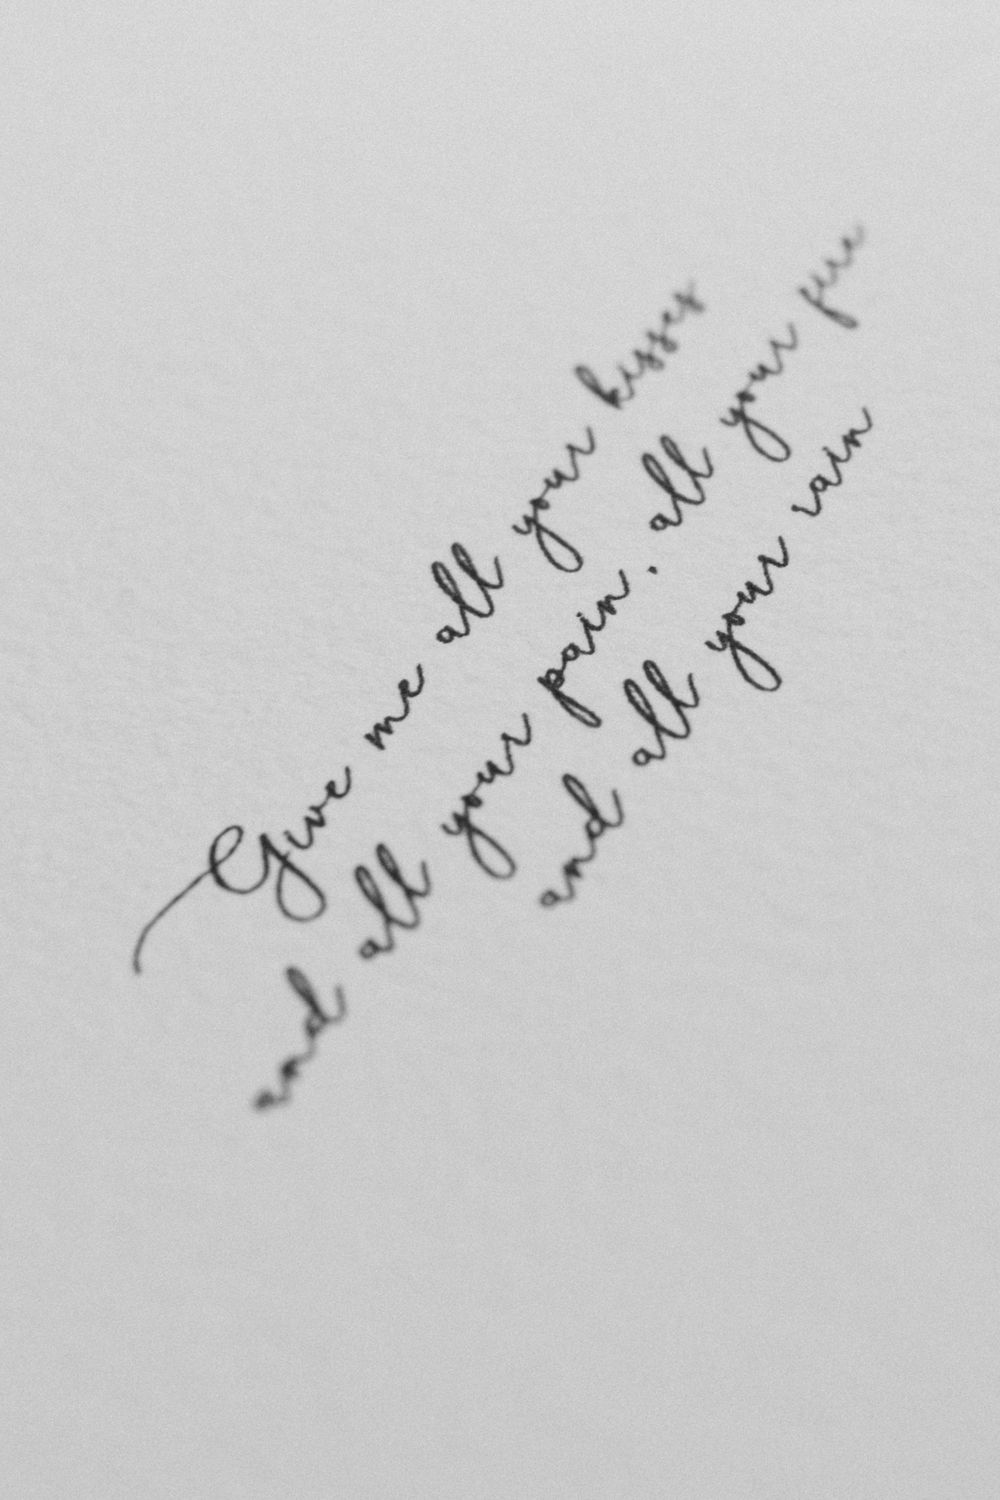 Give me all your kisses
and all your pain. all your fire
and all your rain